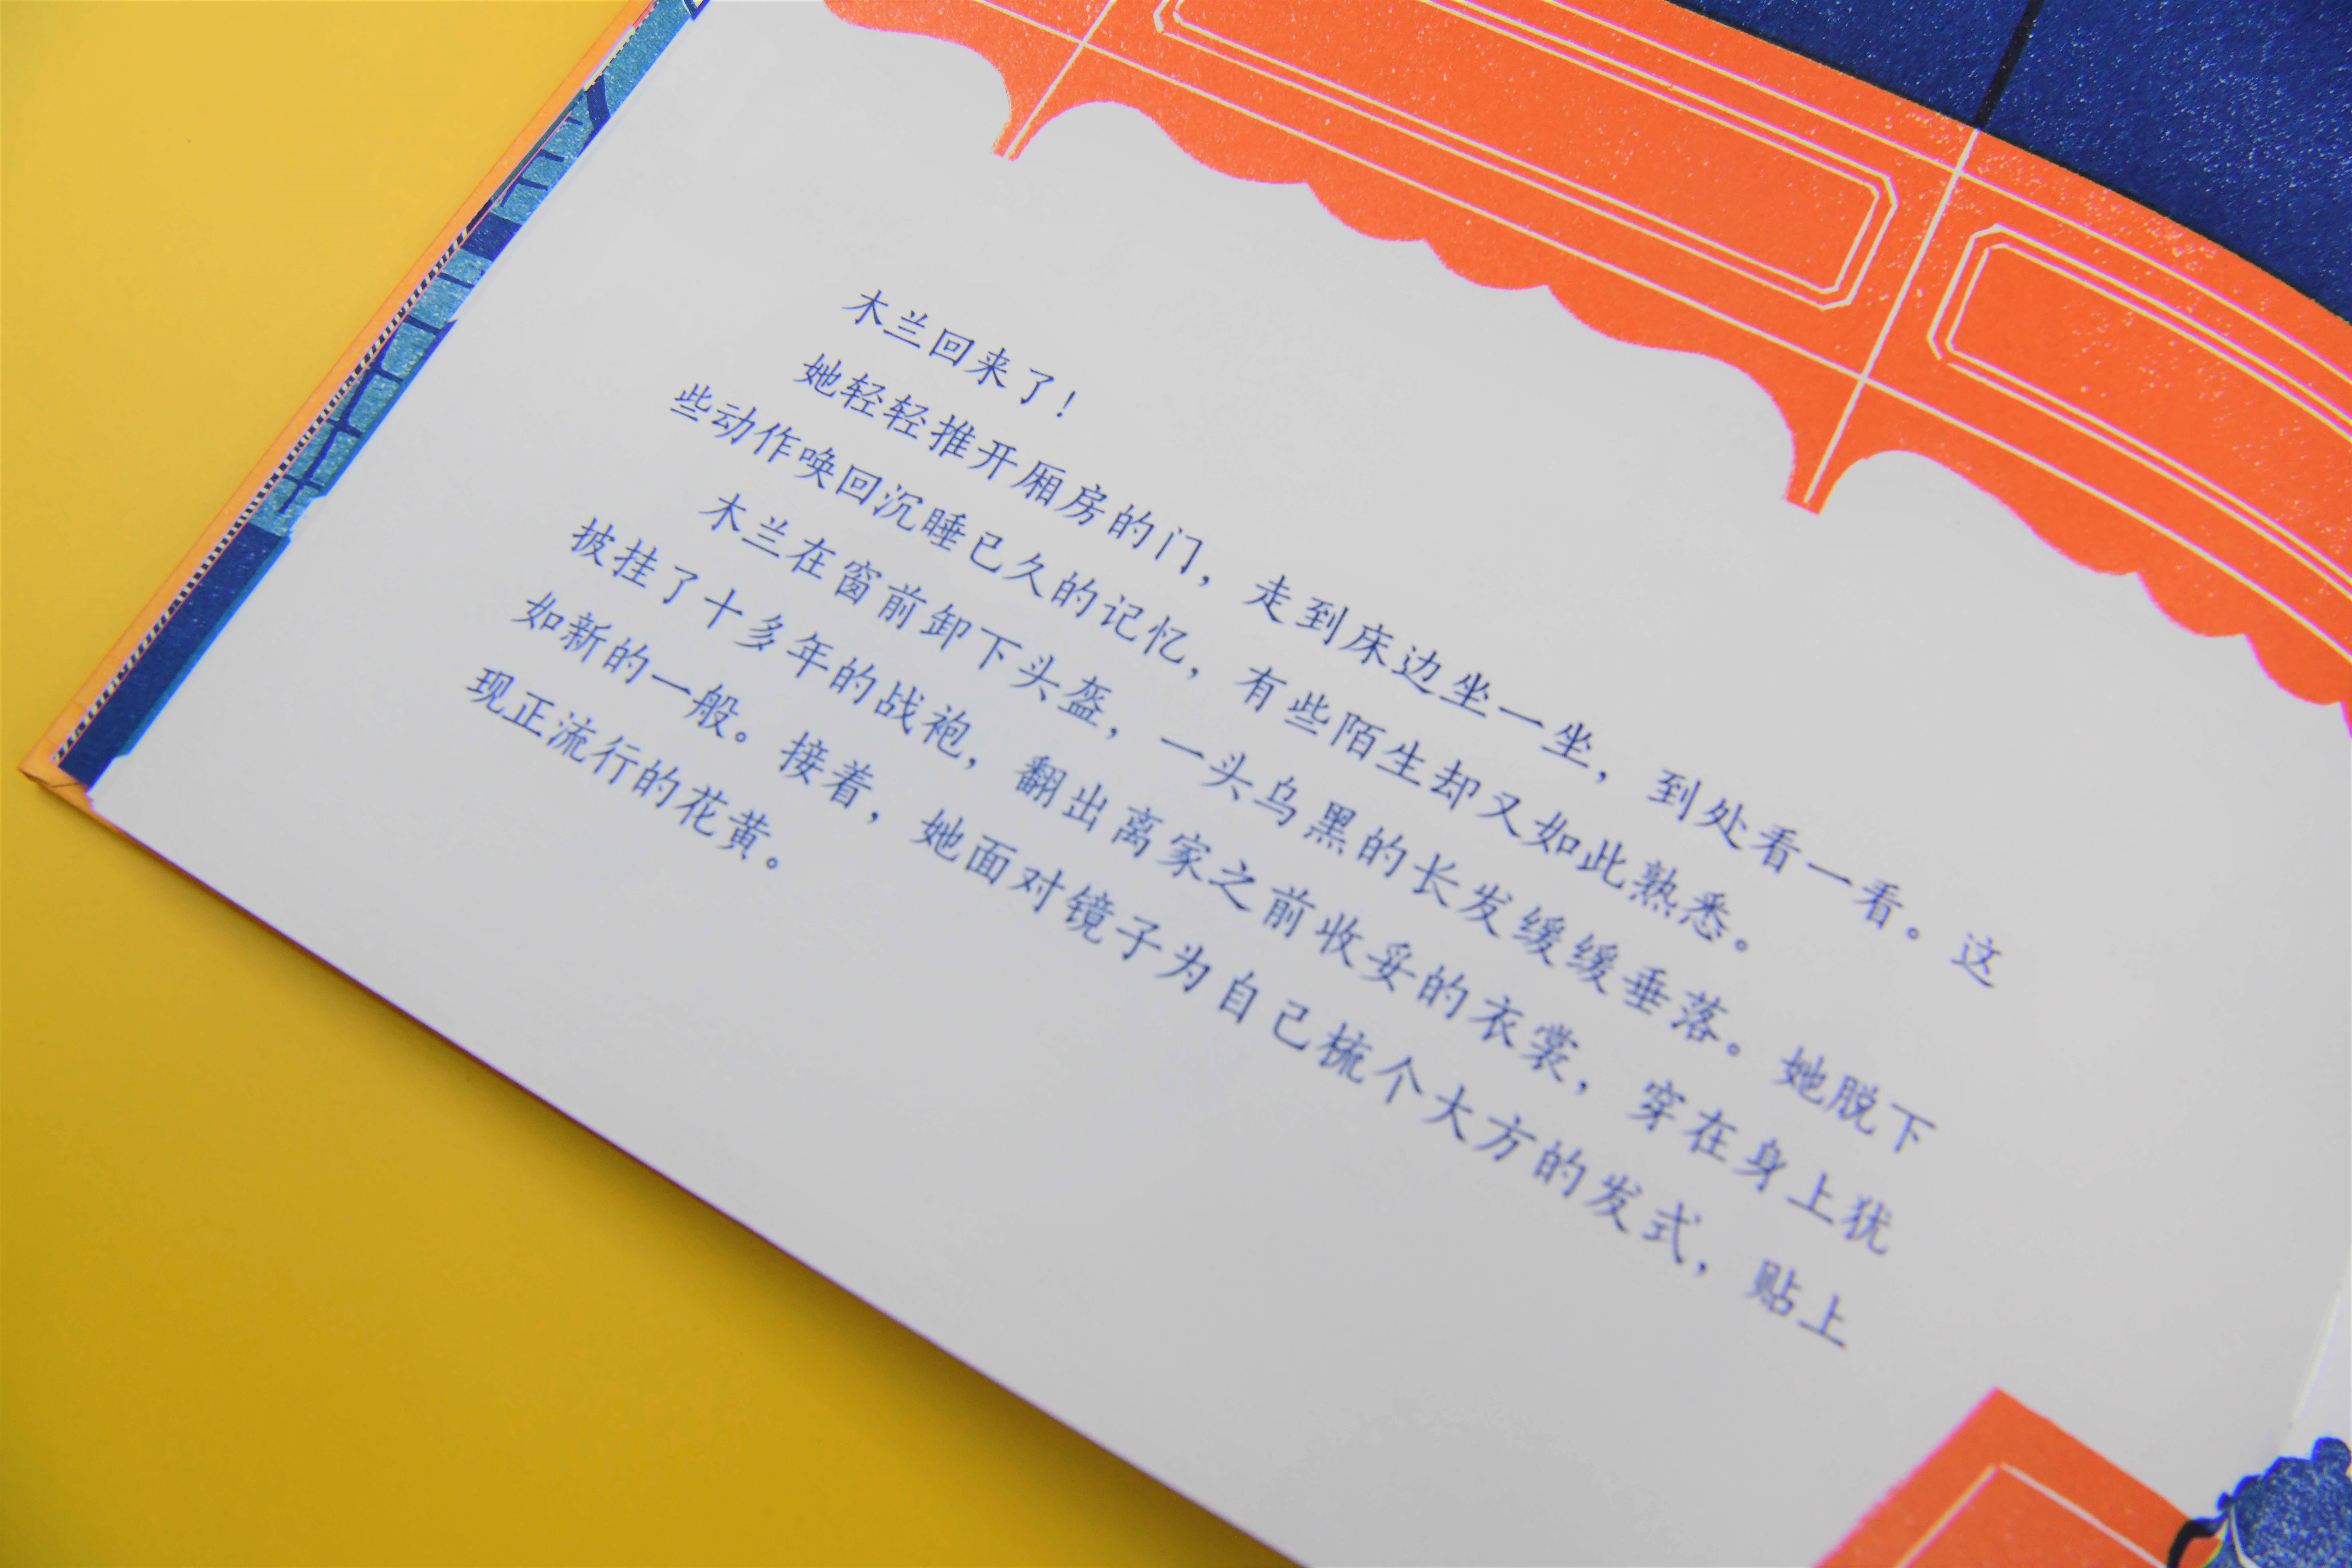 木兰回来了！
她轻轻推开厢房的门，走到床边坐一坐，到处看一看。这
些动作唤回沉睡已久的记忆，有些陌生却又如此熟悉。
木兰在窗前卸下头盔，一头乌黑的长发缓缓垂落。她脱下
披挂了十多年的战袍，翻出离家之前收妥的衣裳，穿在身上犹
如新的一般。接着，她面对镜子为自己梳个大方的发式，贴上
现正流行的花黄。